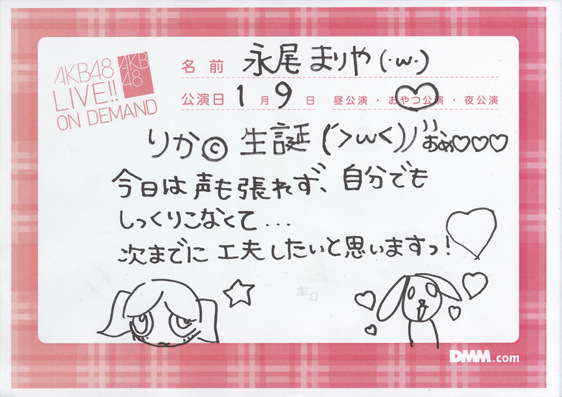 AKB48
LIVE!!
ON DEMAND
AKB
48
名前 永尾まりや(・w・)
公演日 1月9日 昼公演・おやつ公演・夜公演
りか© 生誕 (´>w<))
おめ♡♡♡
今日は声も張れず、自分でも
しっくりこなくて...
次までに工夫したいと思いますっ!
DMM.com